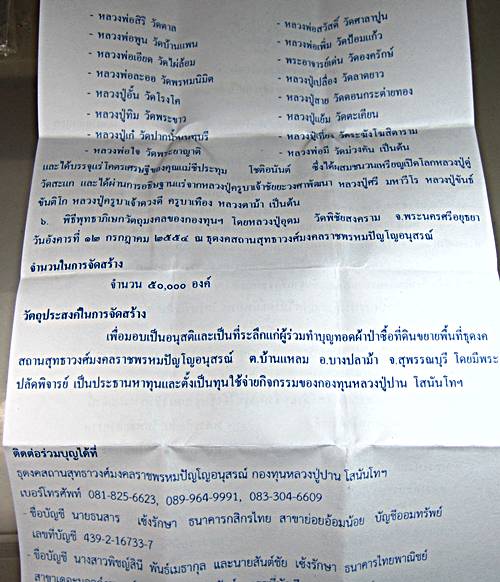 - หลวงพ่อสิริ วัดตาล - หลวงพ่อสวัสดิ์ วัดศาลาปูน
- หลวงพ่อพูน วัดบ้านแพน - หลวงพ่อเพิ่ม วัดป้อมแก้ว
- หลวงพ่อเอียด วัดไผ่ล้อม - พระอาจารย์เด่น วัดองครักษ์
- หลวงพ่อละออ วัดพรหมนิมิต - หลวงปู่เปลื่อง วัดลาดยาว
- หลวงปู่อั้น วัดโรงโค - หลวงปู่สาย วัดดอนกระต่ายทอง
- หลวงปู่ทิม วัดพระขาว - หลวงปู่แย้ม วัดตะเคียน
- หลวงปู่เก๋ วัดปากน้ำนนทบุรี - หลวงปู่เที่ยง วัดระฆังโฆสิตาราม
- หลวงพ่อใจ วัดพระยาญาติ - หลวงพ่อมี วัดม่วงคัน เป็นต้น
และได้บรรจุแร่โคตรเศรษฐีของคุณแม่ชีประทุม โชติอนันต์ ซึ่งได้ผสมชนวนเหรียญเปิดโลกหลวงปู่ดู่
วัดสะแก และได้ผ่านการอธิษฐานแร่จากหลวงปู่ครูบาเจ้าชัยยะวงศาพัฒนา หลวงปู่ศรี มหาวีโร หลวงปู่ขันธ์
ขันติโก หลวงปู่ครูบาเจ้าดวงดี ครูบาเทือง หลวงตาม้า เป็นต้น
๖. พิธีพุทธาภิเษกวัตถุมงคลของกองทุนฯ โดยหลวงปู่อุดม วัดพิชัยสงคราม จ.พระนครศรีอยุธยา
วันอังคารที่ ๑๒ กรกฎาคม ๒๕๕๔ ณ ธุดงคสถานสุทธาวงศ์มงคลราชพรหมปัญโญอนุสรณ์
จำนวนในการจัดสร้าง
จำนวน ๕๐,๐๐๐ องค์
วัตถุประสงค์ในการจัดสร้าง
เพื่อมอบเป็นอนุสติและเป็นที่ระลึกแก่ผู้ร่วมทำบุญทอดผ้าป่าซื้อที่ดินขยายพื้นที่ธุดงค
สถานสุทธาวงศ์มงคลราชพรหมปัญโญอนุสรณ์ ต.บ้านแหลม อ.บางปลาม้า จ.สุพรรณบุรี โดยมีพระ
ปลัดพิจารย์ เป็นประธานหาทุนและตั้งเป็นทุนใช้จ่ายกิจกรรมของกองทุนหลวงปู่ปาน โสนันโทฯ
ติดต่อร่วมบุญได้ที่
ธุดงคสถานสุทธาวงศ์มงคลราชพรหมปัญโญอนุสรณ์ กองทุนหลวงปู่ปาน โสนันโทฯ
เบอร์โทรศัพท์ 081-825-6623, 089-964-9991, 083-304-6609
- ชื่อบัญชี นายธนสาร เซ้งรักษา ธนาคารกสิกรไทย สาขาย่อยอ้อมน้อย บัญชีออมทรัพย์
เลขที่บัญชี 439-2-16733-7
- ชื่อบัญชี นางสาวพิชญ์สินี พันธ์เมธากุล และนายสันต์ชัย เซ้งรักษา ธนาคารไทยพาณิชย์